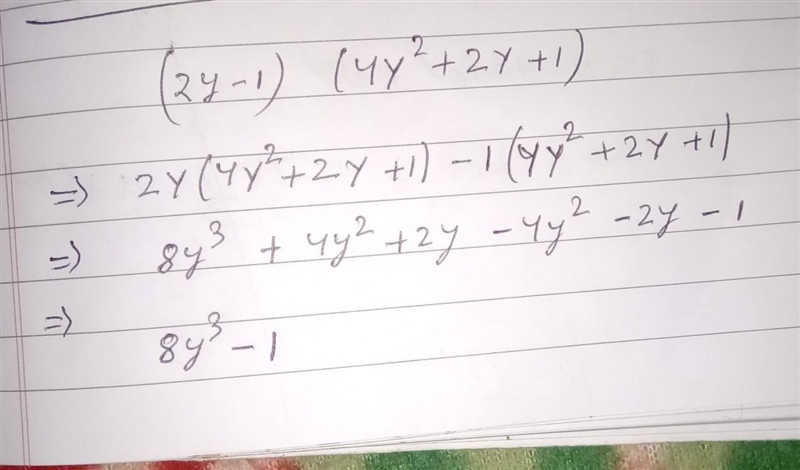 (2y-1) (4y²+2y+1)
=> 2y(4y²+2y+1) -1(4y²+2y+1)
=> 8y³ + 4y² +2y -4y² -2y -1
=>
8y³ -1